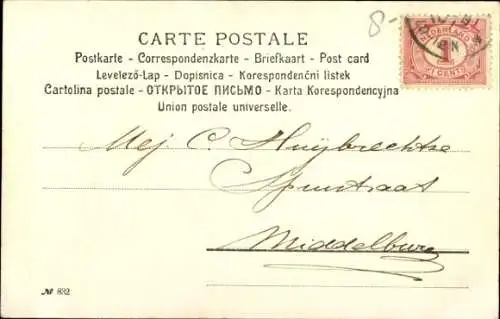 8-
CARTE POSTALE
Postkarte - Correspondenzkarte - Briefkaart - Post card
Levelező-Lap - Dopisnica - Korespondenční listek
Cartolina postale - ОТКРЫТОЕ ПИСЬМО - Karta Korespondencyjna
Union postale universelle.
NEDERLAND
1
CENT
Mej. C. Huijbrechtse
Spuistraat
Middelburg
№ 832